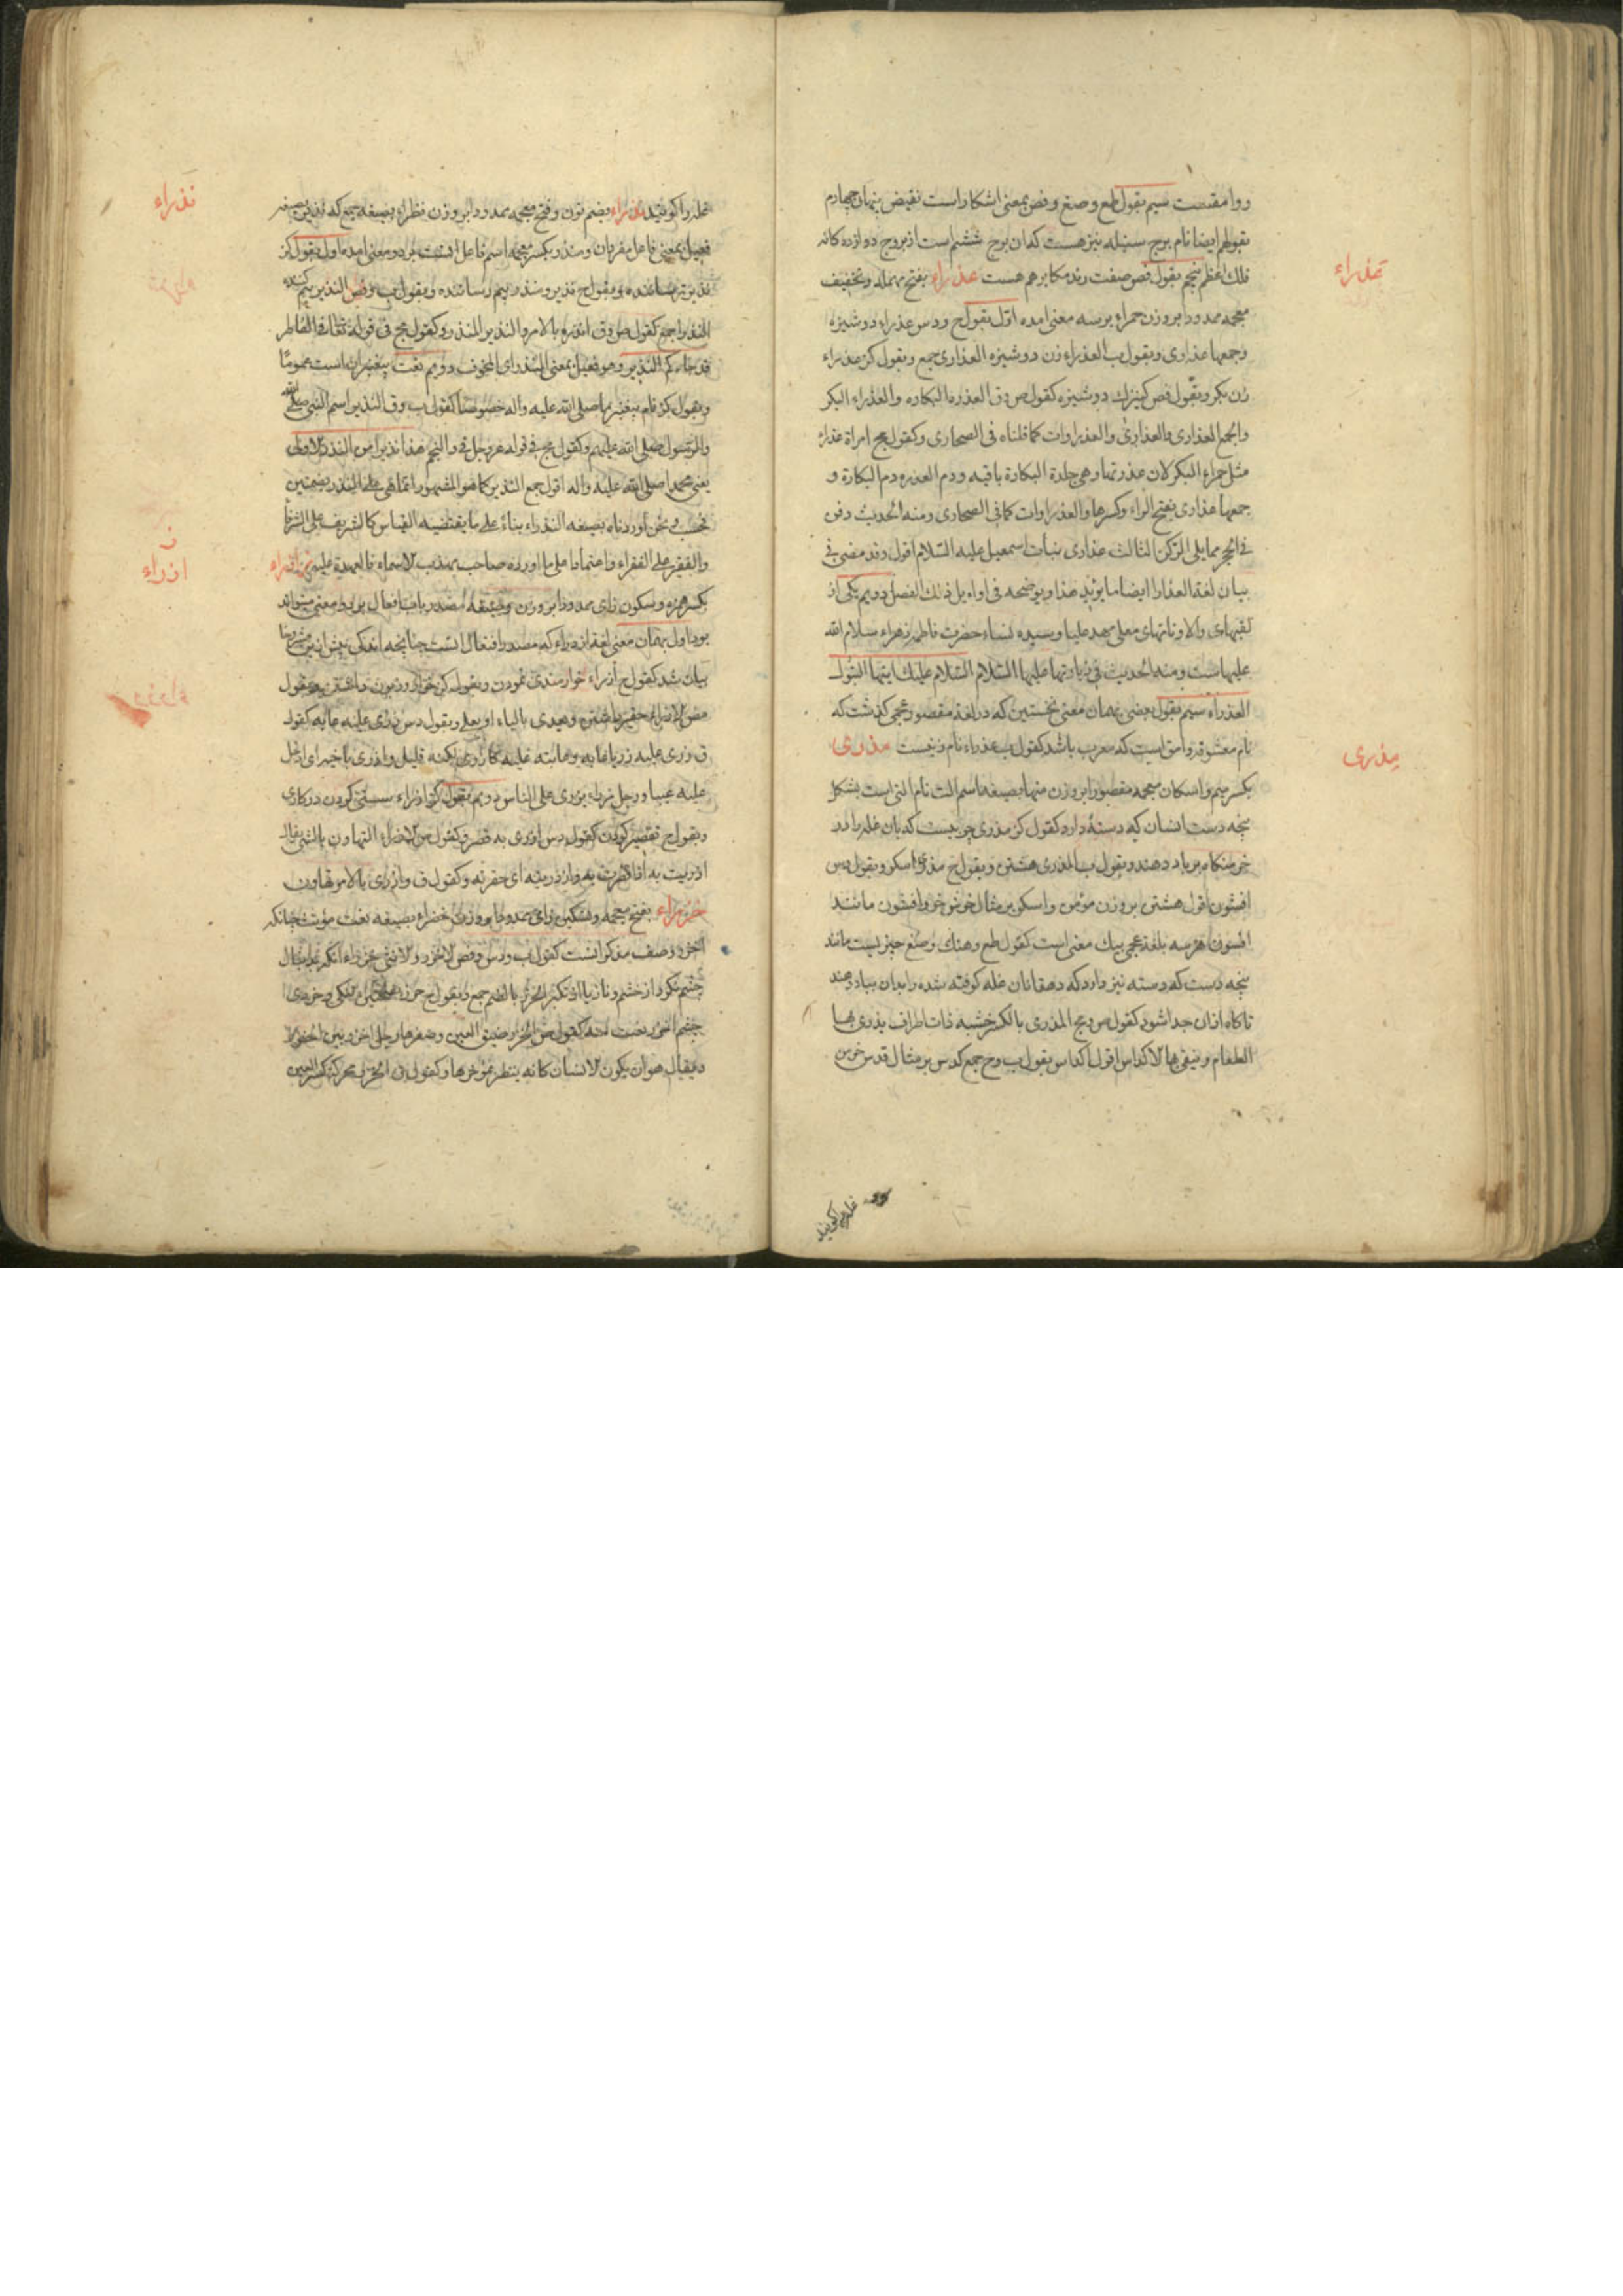 روا مقتست سیم بقول طع وصغ وفض بمعنی اشکار است نقیض پنهان چهارم
بقولهم ایضا نام برج سنبله نیز هست که ان برج ششم است از بروج دوازده کانه
فلك اعظم پنجم بقول فض صفت رند مکابر هم هست عذراء بفتح مهمله وتخفیف
عذراء
معجمه ممدودا بر وزن حمراء بر سه معنی امده اول بقول ح ودس عذراء دوشیزه
وجمعها عذاری وبقول ب العذراء زن دوشیزه العذاری جمع وبقول کز عذراء
زن بکر وبقول فض کنیزك دوشیزه کقول ص وق العذره البکاره والعذراء البکر
والجمع العذاری والعذاری والعذراوات کما قلناه فی الصحاری وکقول مج امراة عذراء
مثل حمراء البکر لان عذرتها وهی جلدة البکارة باقیه ودم العذره دم البکارة و
جمعها عذاری بفتح الراء وکسرها والعذراوات کما فی الصحاری ومنه الحدیث دفن
فی الحجر مما یلی الرکن الثالث عذاری بنات اسمعیل علیه السلام اقول وقد مضی فی
بیان لغة العذارا ایضا ما یؤید هذا ویوضحه فی اوایل ذلك الفصل دویم یکی از
لقبهای والا ونامهای معلی مهد علیا وسیده نساء حضرت فاطمه زهراء سلام الله
علیها است ومنه الحدیث فی زیارتها علیها السلام السلام علیك ایتها البتول
العذراء سیم بقول بعضی بهمان معنی نخستین که در لغة مقصور عجمی کذشت که
نام معشوقه وامق است که معرب باشد کقول ب عذراء نام زنیست مذری
مذری
بکسر میم واسکان معجمه مقصورا بر وزن منها بصیغه اسم الت نام التی است بشکل
پنجه دست انسان که دستهٔ دارد کقول کز مذری چوبیست که بان غله را در
خرمنکاه بر باد دهند وبقول ب المذری هشتن وبقول ح مذری اسکو وبقول دس
افشون اقول هشتن بر وزن مؤمن واسکو بر مثال خوش خو وافشون مانند
افسون هر سه بلغة عجمی بیك معنی است کقول طع وهنك وصغ چیزیست مانند
پنجه دست که دسته نیز دارد که دهقانان غله کوفته شده را بدان بباد دهند
تا کاه ازان جدا شود کقول ص ومج المذری بالکسر خشبه ذات اطراف یذری بها
الطعام وینقی بها الاکداس اقول اکداس بقول ب وح جمع کدس بر مثال قدس خرمن
غله را کویند
غله را کویند نذراء بضم نون وفتح معجمه ممدودا بر وزن نظراء بصیغه جمع که نذیر بصیغه
نذراء
فعیل بمعنی فاعل مفردان ومنذر بکسر معجمه اسم فاعل انست بر دو معنی امده اول بقول کز
نذیر ترساننده وبقول ح نذیر ومنذر بیم رساننده وبقول ب وفض النذیر بیم کننده
النذر جمع کقول ص وق انذره بالامر والنذیر المنذر وکقول مج فی قوله تعالی فاطر
قد جاءکم النذیر وهو فعیل بمعنی المنذر ای المخوف دویم نعت پیغمبران است عموما
وبقول کز نام پیغمبر ما صلی الله علیه واله خصوصا کقول ب وق النذیر اسم النبی صلی الله
والرسول صلی الله علیهم وکقول مج فی قوله عز وجل فی والنجم هذا نذیر من النذر الاولی
یعنی محمدا صلی الله علیه واله اقول جمع النذیر کما هو المشهور انما هی علی النذر بضمتین
فحسب ونحن اوردناه بصیغه النذراء بناء علی ما یقتضیه القیاس کالشریف علی الشرفا
والفقیر علی الفقراء واعتمادا علی ما اورده صاحب مهذب الاسماء فالعهدة علیه اذراء
اذراء
بکسر همزه وسکون زای ممدودا بر وزن وصیغه مصدر باب افعال بر دو معنی میتواند
بود اول بهمان معنی لغة ازدراء که مصدر افتعال انست چنانچه اندکی پیش ازین مشروحا
بیان شد کقول ح أزراء خوارمندی نمودن وبقول کز خوار
ق زری علیه زریا عابه وعاتبه
علیه عیبا ورجل مزراء یزری علی الناس دویم بقول کز ازراء سستی کردن در کاری
وبقول ح تقصیر کردن کقول دس ازری به قصر وکقول ص الازراء التهاون بالشیء یقال
ازریت به اذا قصرت به وازدریته ای حقرته وکقول ق وازری بالامر تهاون
خزراء بفتح معجمه وتسکین زای ممدودا بر وزن خضراء بصیغه نعت مؤنث چنانکه
اخزر وصف مذکر انست کقول ب ودس وفض الاخزر والانثی خزراء انکه بدنبال
چشم نکرد از خشم وناز یا از تکبر الخزر بالضم جمع وبقول ح خزر تنکی وخردی
چشم النعت منه کقول ص الخزر ضیق العین وصغرها رجل اخزر بین الخزر
ویقال هو ان یکون الانسان کانه ینظر بمؤخرها وکقول ق الخزر محرکة کسر العین